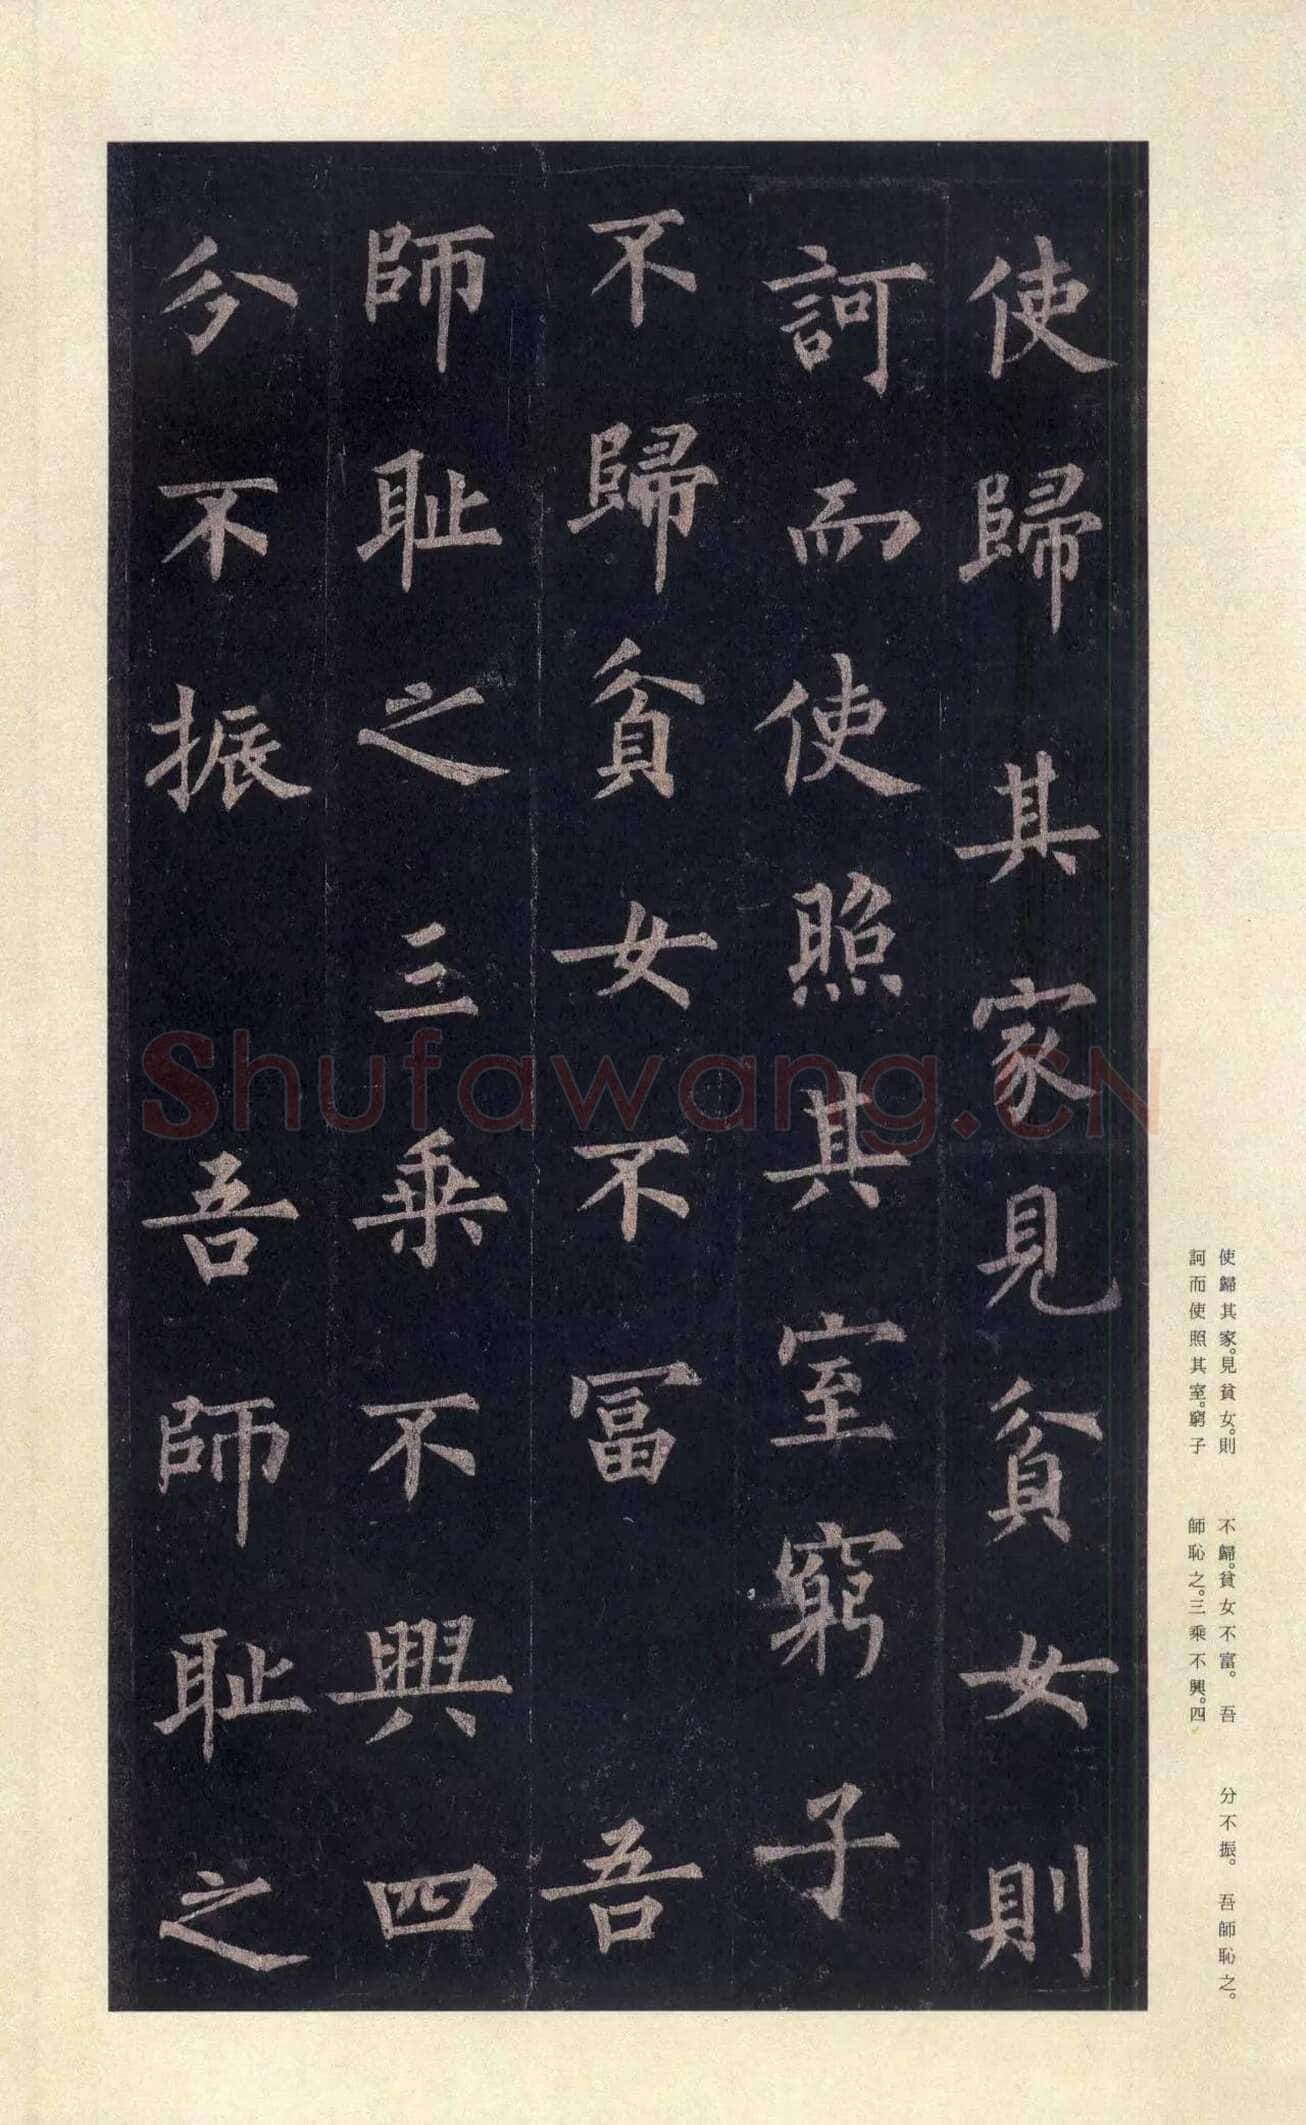 使歸其家見貧女則
訶而使照其室窮子
不歸貧女不冨　吾
師耻之三乗不興四
分不振　吾師耻之
使歸其家。見貧女。則
訶而使照其室。窮子
不歸。貧女不富。　吾
師恥之。三乘不興。四
分不振。　吾師恥之。
Shufawang.CN